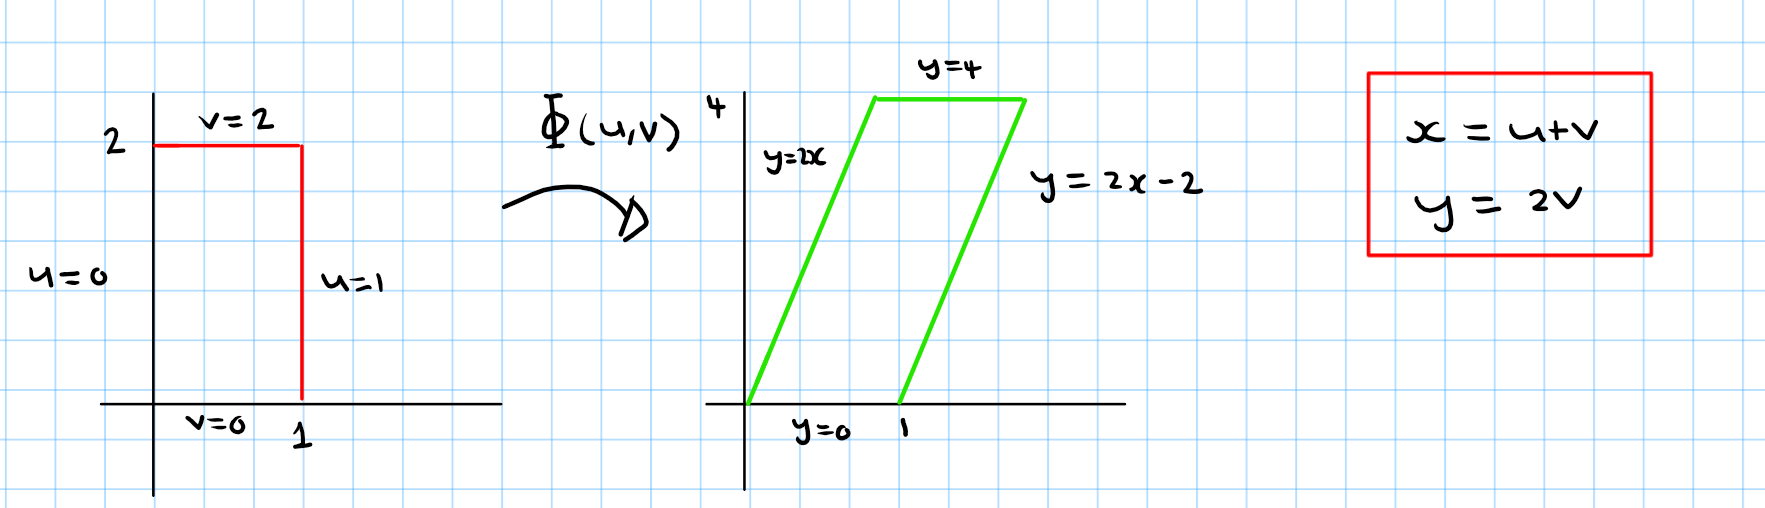 v=2
2
u=0
u=1
v=0
1
Φ(u,v)
y=4
4
y=2x
y=2x-2
y=0
1
x=u+v
y=2v